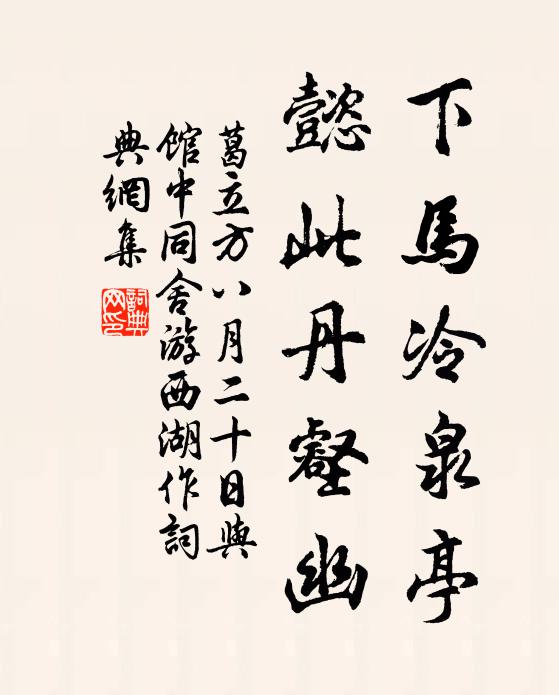 下馬冷泉亭
懿此丹壑幽
葛立方八月二十日與
館中同舍游西湖作詞
典網集
詞典網印